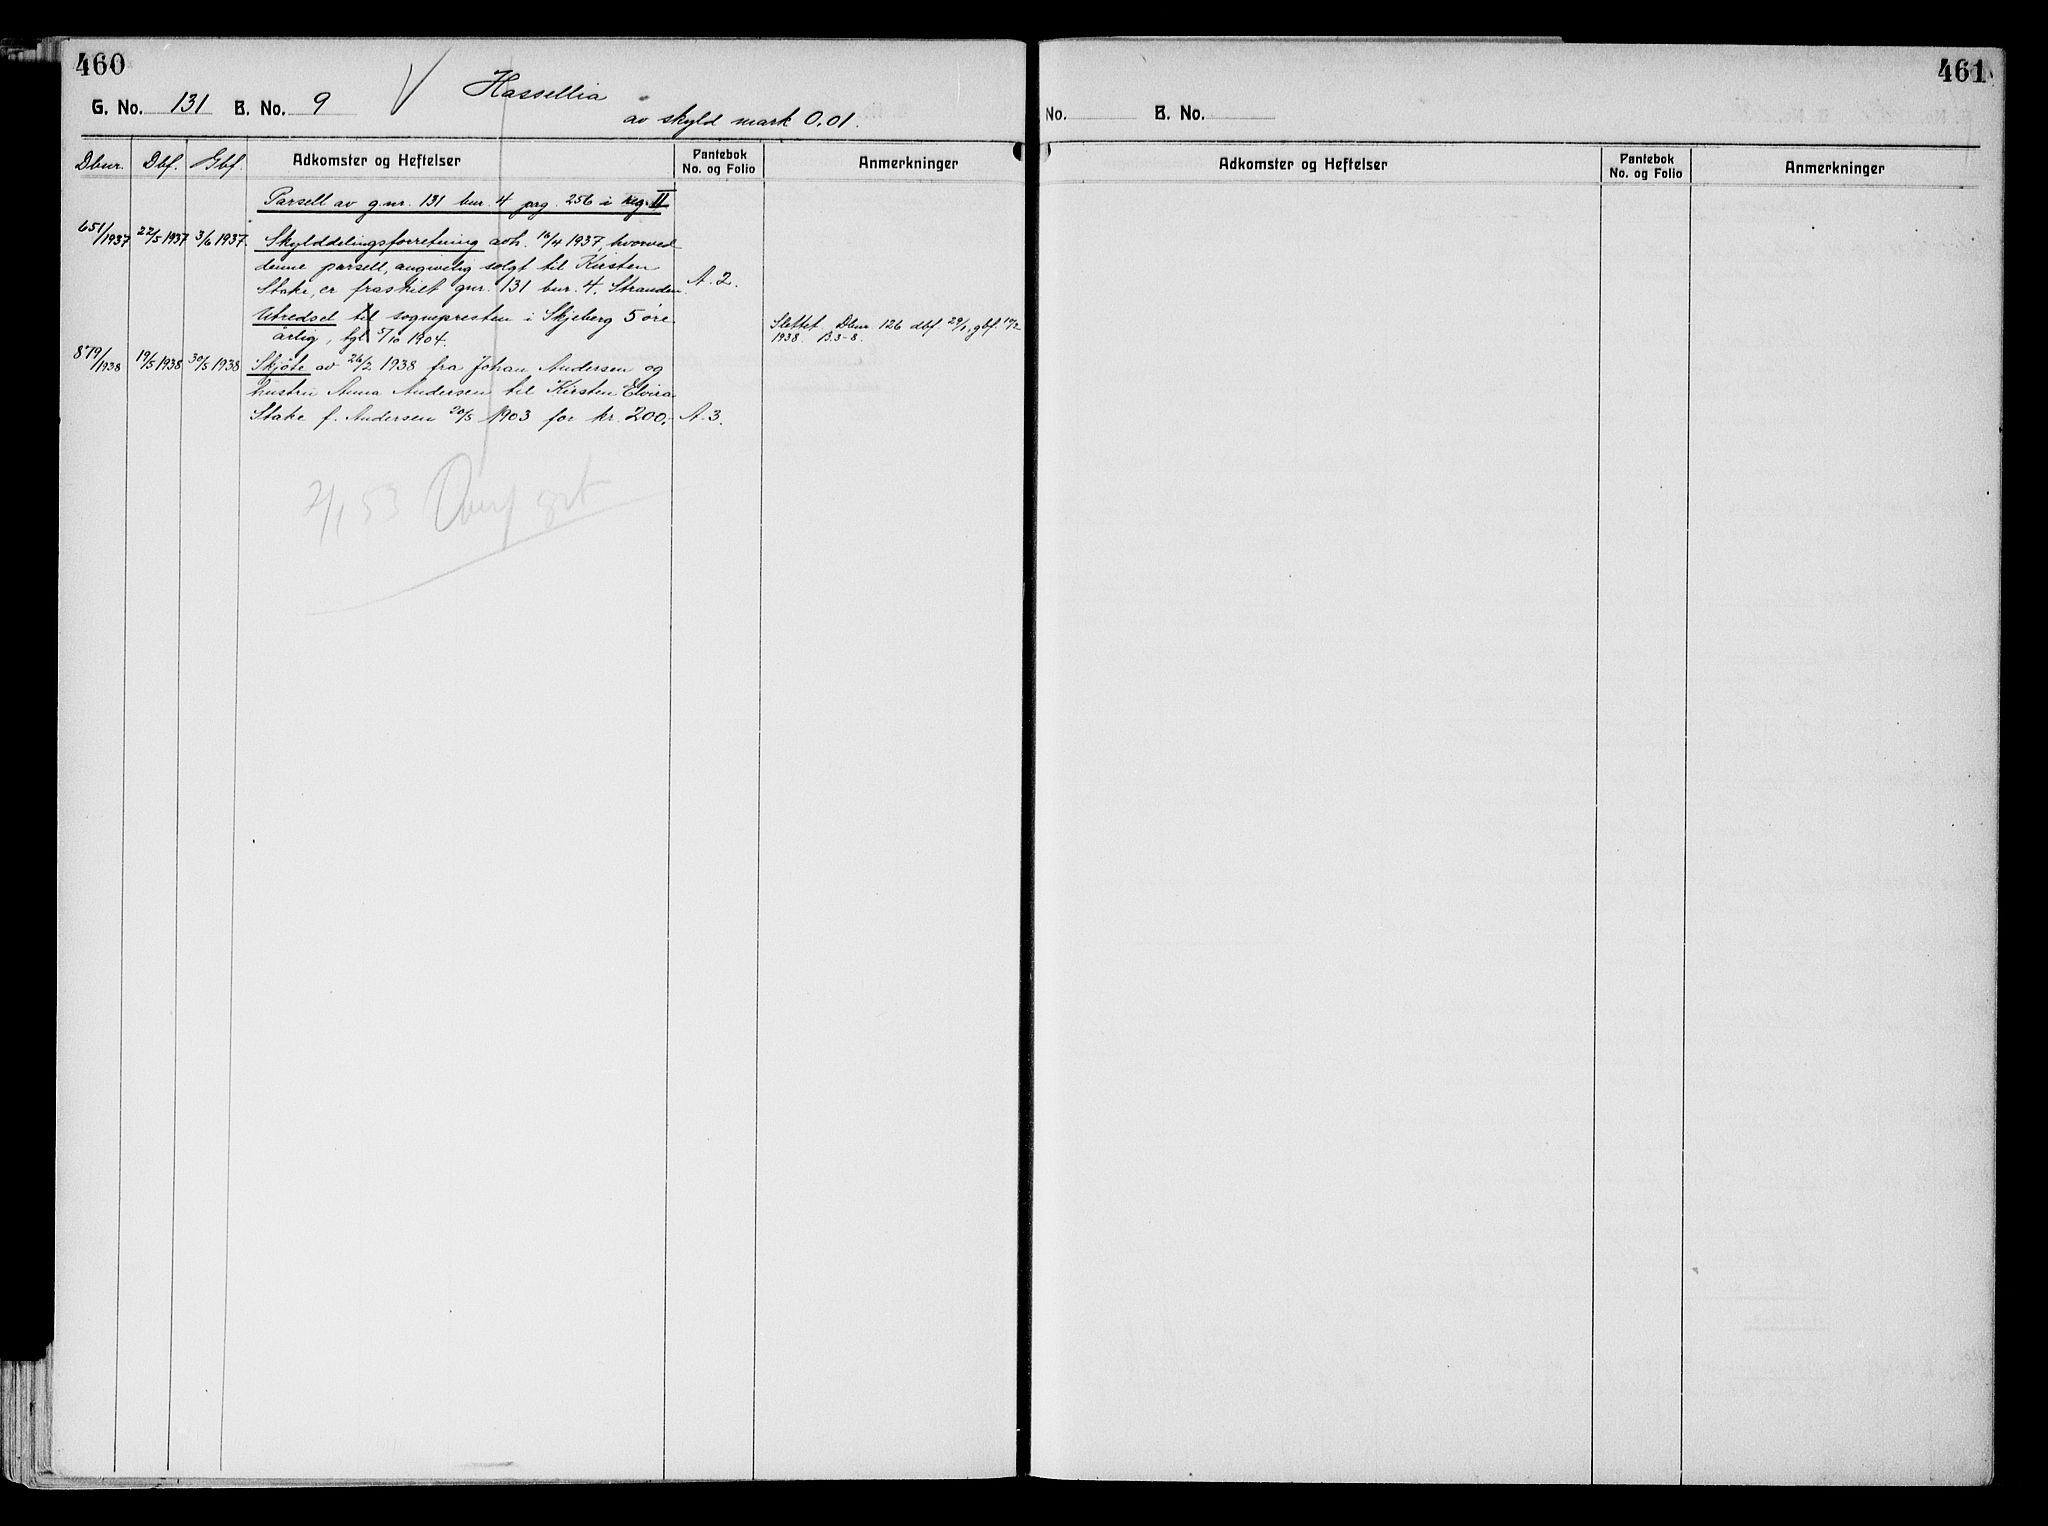 460
G. No. 131 B. No. 9 Hassellia
av skyld mark 0.01.
Dbnr. Dbf. Gbf. Adkomster og Heftelser Pantebok No. og Folio Anmerkninger
Parsell av g.nr. 131 bnr. 4 pag. 256 i reg. II
651/1937 22/5 1937 3/6 1937. Skylddelingsforretning avh. 16/4 1937, hvorved
denne parsell, angivelig solgt til Kirsten
Stake, er fraskilt gnr. 131 bnr. 4. Stranden. A. 2.
Utredsel til sognepresten i Skjeberg 5 øre
årlig, tgl 5/10 1904.
Slettet. Dbnr. 126 dbf. 29/1, gbf. 10/2
1938. B.3-8.
879/1938 19/5 1938 30/5 1938 Skjøte av 26/2 1938 fra Johan Andersen og
hustru Anna Andersen til Kirsten Elvira
Stake f. Andersen 20/5 1903 for kr. 200,- A. 3.
2/1 53 Overført
461
No. B. No.
Adkomster og Heftelser Pantebok No. og Folio Anmerkninger